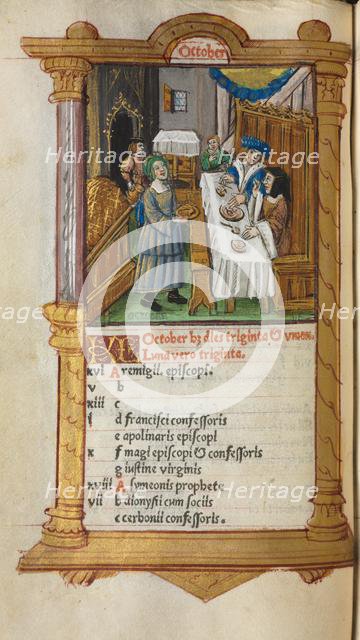 October
OCTOBER
October hz dies triginta & unum.
Luna vero triginta.
xvi A remigii episcopi.
v b
xiii c
ii d francisci confessoris
e apolinaris episcopi
x f magi episcopi & confessoris
g iustine virginis
xviii A symeonis prophete
vii b dionysii cum sociis
c cerbonii confessoris.
Heritage Heritage
Heritage Heritage
Heritage Heritage
Images
Heritage Heritage
Heritage Heritage